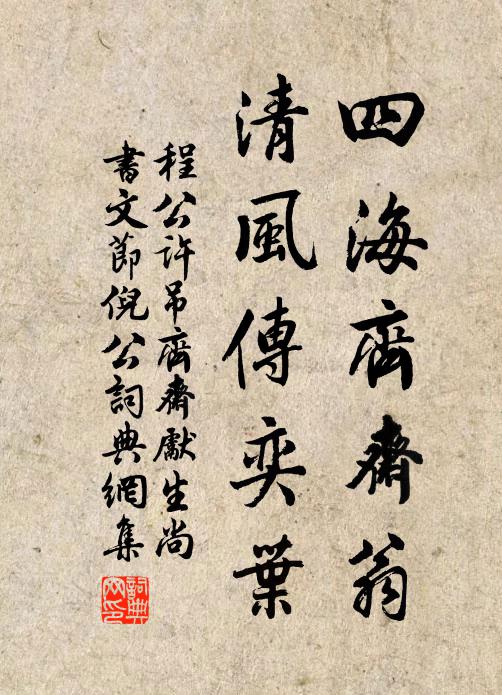 四海齊齋翁
清風傳奕葉
程公許吊齊齋獻生尚
書文節倪公詞典網集
詞典
网印